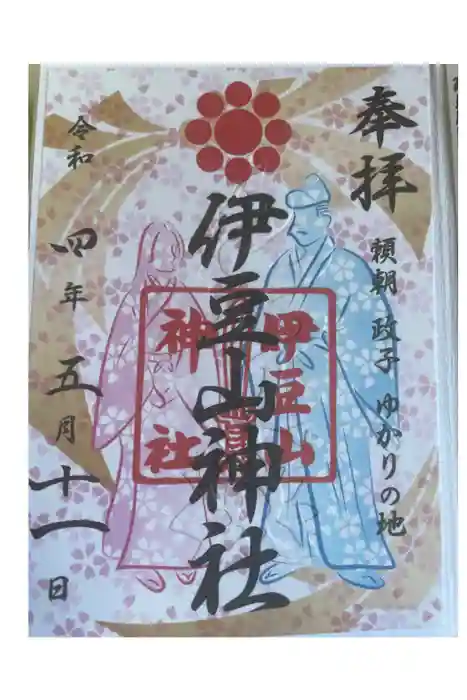 奉拝
頼朝 政子 ゆかりの地
伊豆山神社
伊豆山
神社
令和
四年 五月 十一日